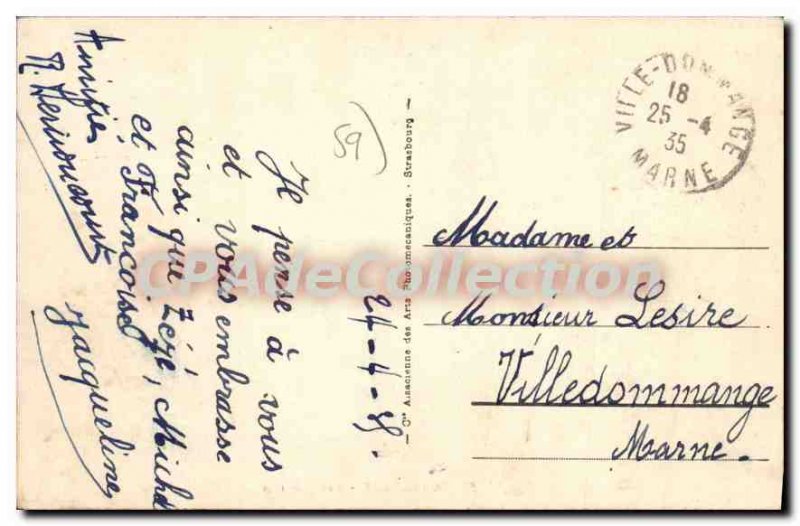 24-4-35.
Je pense à vous
et vous embrasse
ainsi que Zézé, Michel
et Françoise
Jacqueline
Amitiés
59
— Cie Alsacienne des Arts Photomécaniques. - Strasbourg —
VILLE-DOMMANGE
18
25 -4
35
MARNE
Madame et
Monsieur Lesire
Villedommange
Marne.
CPAdeCollection